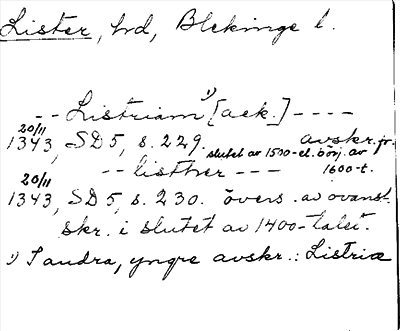 Lister, hd, Blekinge l.
-- Listriam ¹) [ack.] ----
20/11 1343, SD 5, s. 229. avskr. fr. slutet av 1500-el. börj. av 1600-t.
-- listher ---
20/11 1343, SD 5, s. 230. övers. av ovanst.
skr. i slutet av 1400-talet.
¹) I andra, yngre avskr.: Listriæ